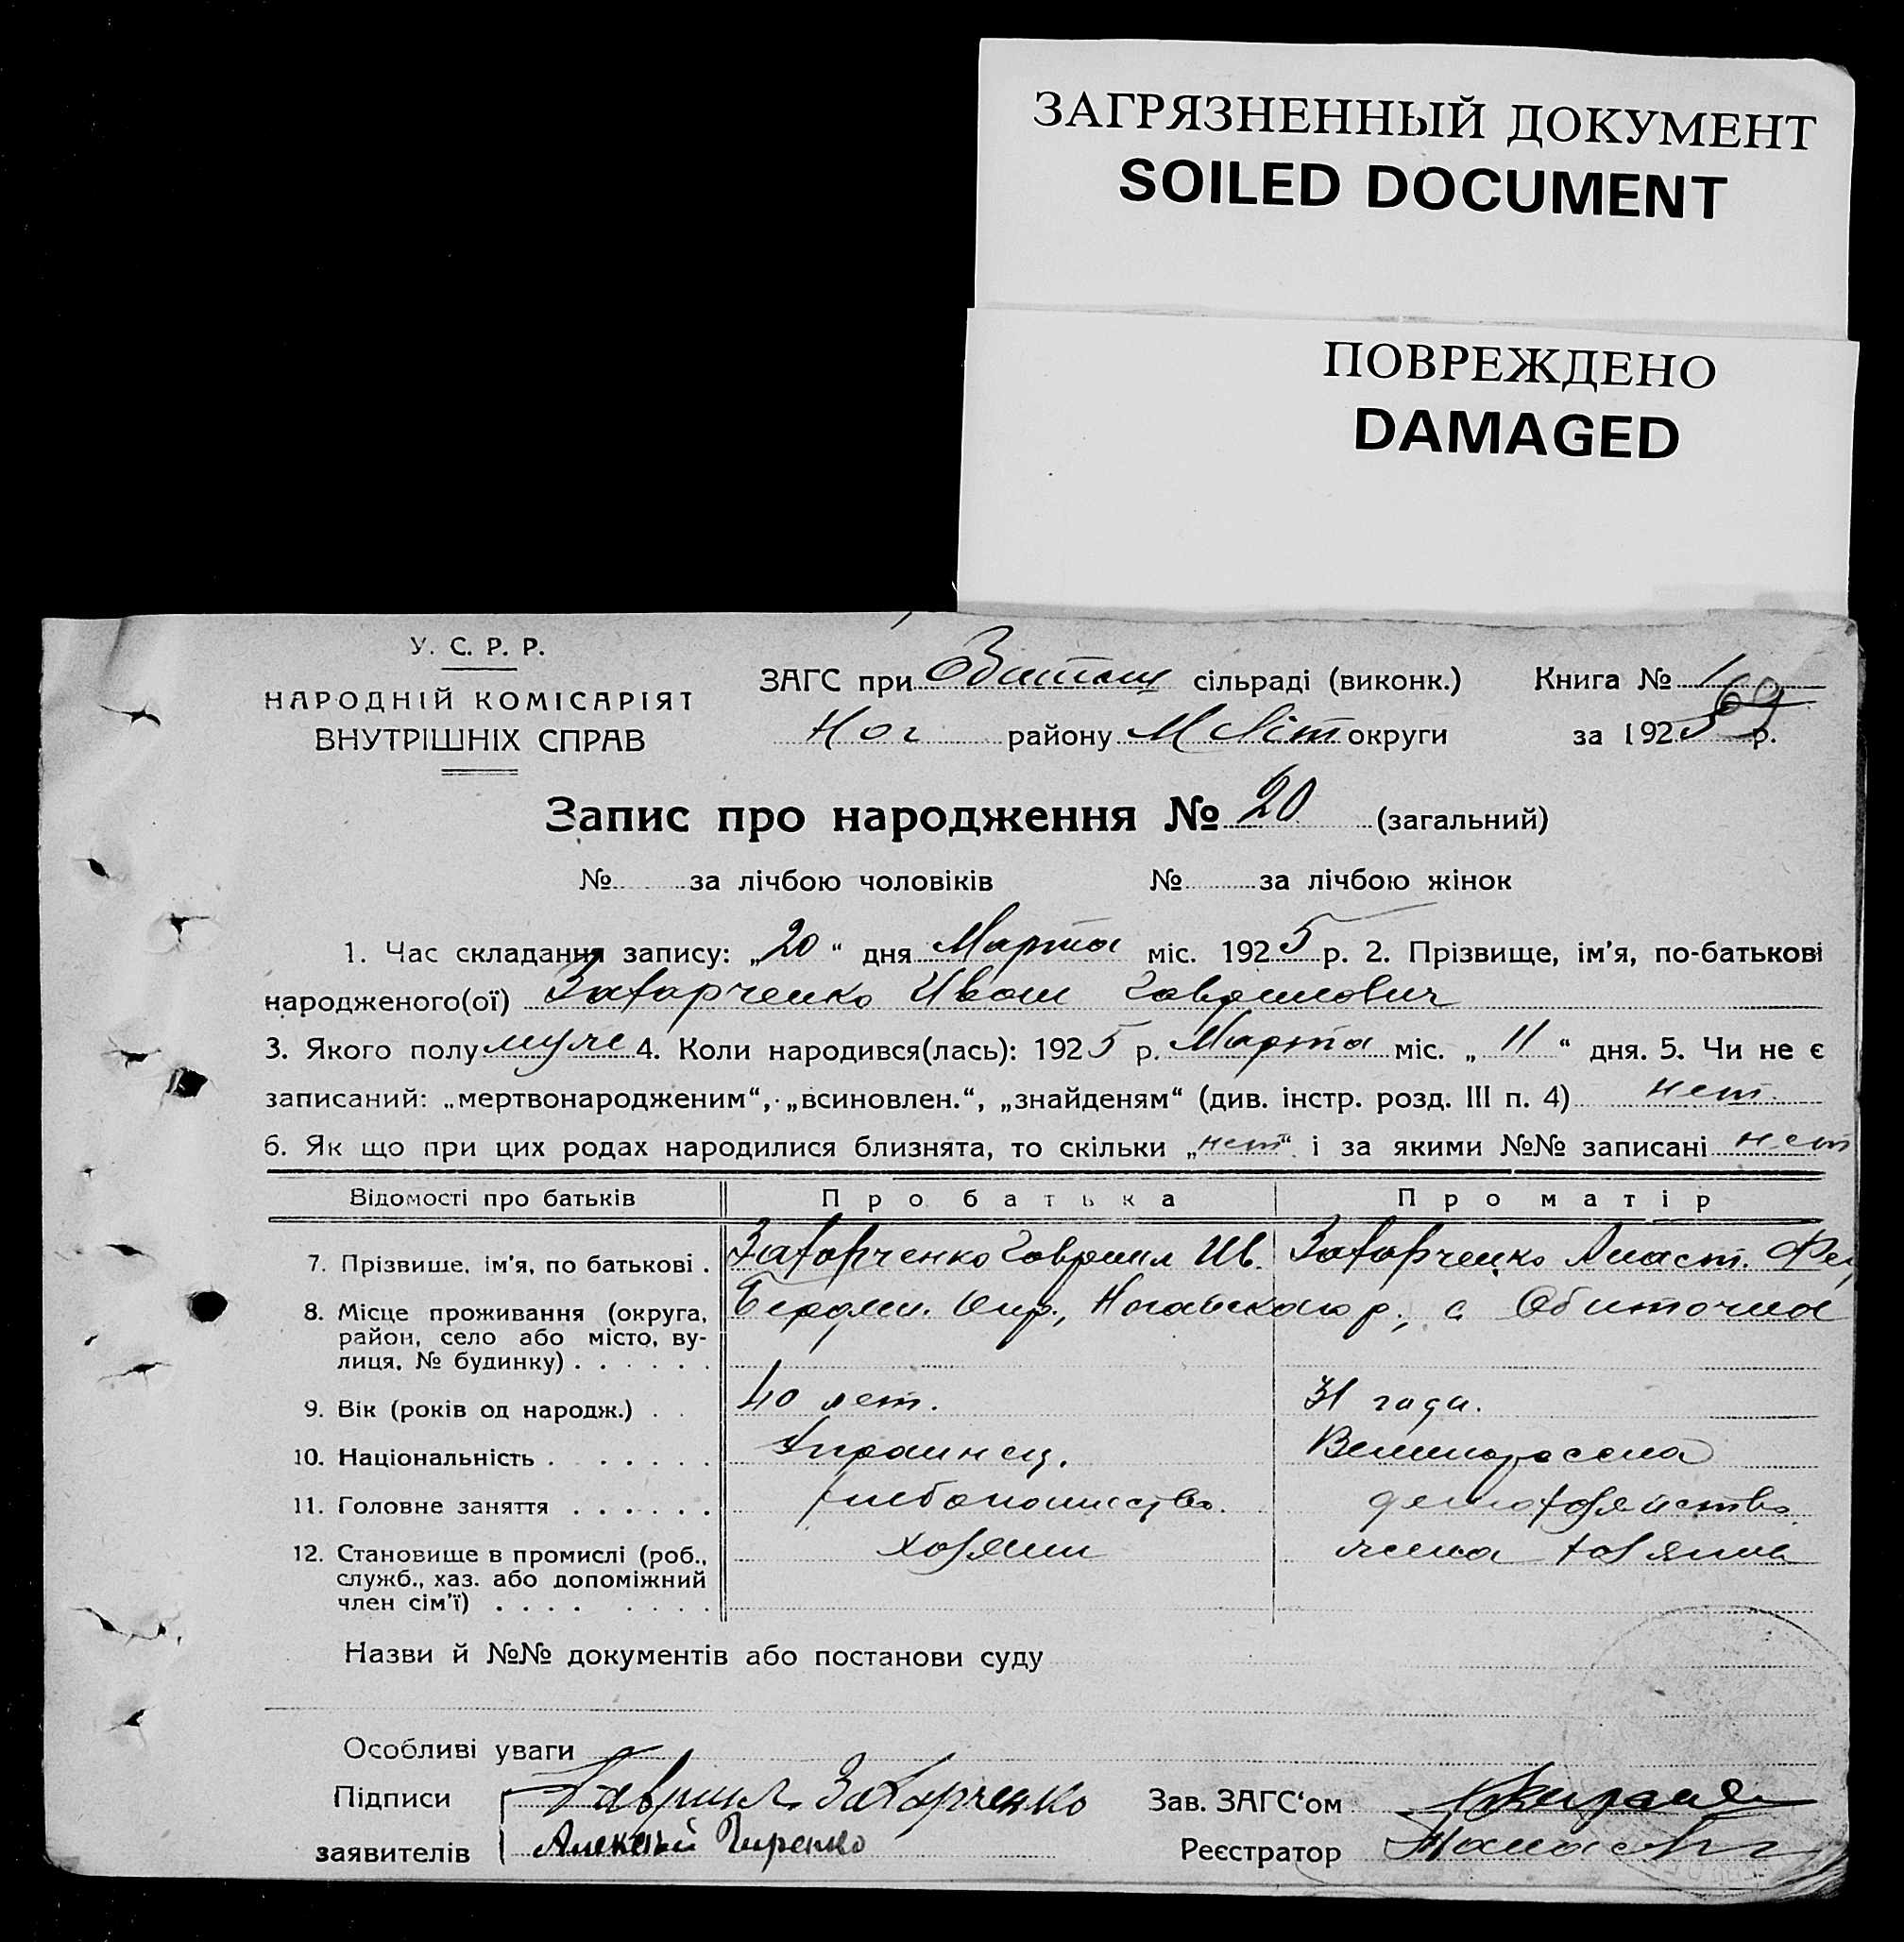 ЗАГРЯЗНЕННЫЙ ДОКУМЕНТ
SOILED DOCUMENT
ПОВРЕЖДЕНО
DAMAGED
У. С. Р. Р.
НАРОДНІЙ КОМІСАРІЯТ
ВНУТРІШНІХ СПРАВ
ЗАГС при сільраді (виконк.)
Книга № 1
Ног району Меліт округи
за 1925 р.
Запис про народження № 20 (загальний)
№ за лічбою чоловіків № за лічбою жінок
1. Час складання запису: „20“ дня Марта міс. 1925 р. 2. Прізвище, ім'я, по-батькові
народженого(ої) Захарченко Иван Гаврилович
3. Якого полу муже 4. Коли народився(лась): 1925 р. Марта міс. „11“ дня. 5. Чи не є
записаний: „мертвонародженим“, „всиновлен.“, „знайденям“ (див. інстр. розд. III п. 4) нет.
6. Як що при цих родах народилися близнята, то скільки „нет“ і за якими №№ записані нет
Відомості про батьків Про батька Про матір
7. Прізвише, ім'я, по батькові . Захарченко Гавриил Ив. Захарченко Анаст. Фе
8. Місце проживання (округа, район, село або місто, вулиця, № будинку) . . . . . . Бердян. Окр., Ногайского р., с Обиточна
9. Вік (років од народж.) . . 40 лет. 31 года.
10. Національність . . . . . . . Украинец. Великоросска
11. Головне заняття . . . . . . хлебопашество. домохозяйство.
12. Становище в промислі (роб., служб., хаз. або допоміжний член сім'ї) . . . . . . . . хозяин жена хозяина
Назви й №№ документів або постанови суду
Особливі уваги
Підписи Гавриил Захарченко Зав. ЗАГС'ом
заявителів Алексей Реєстратор